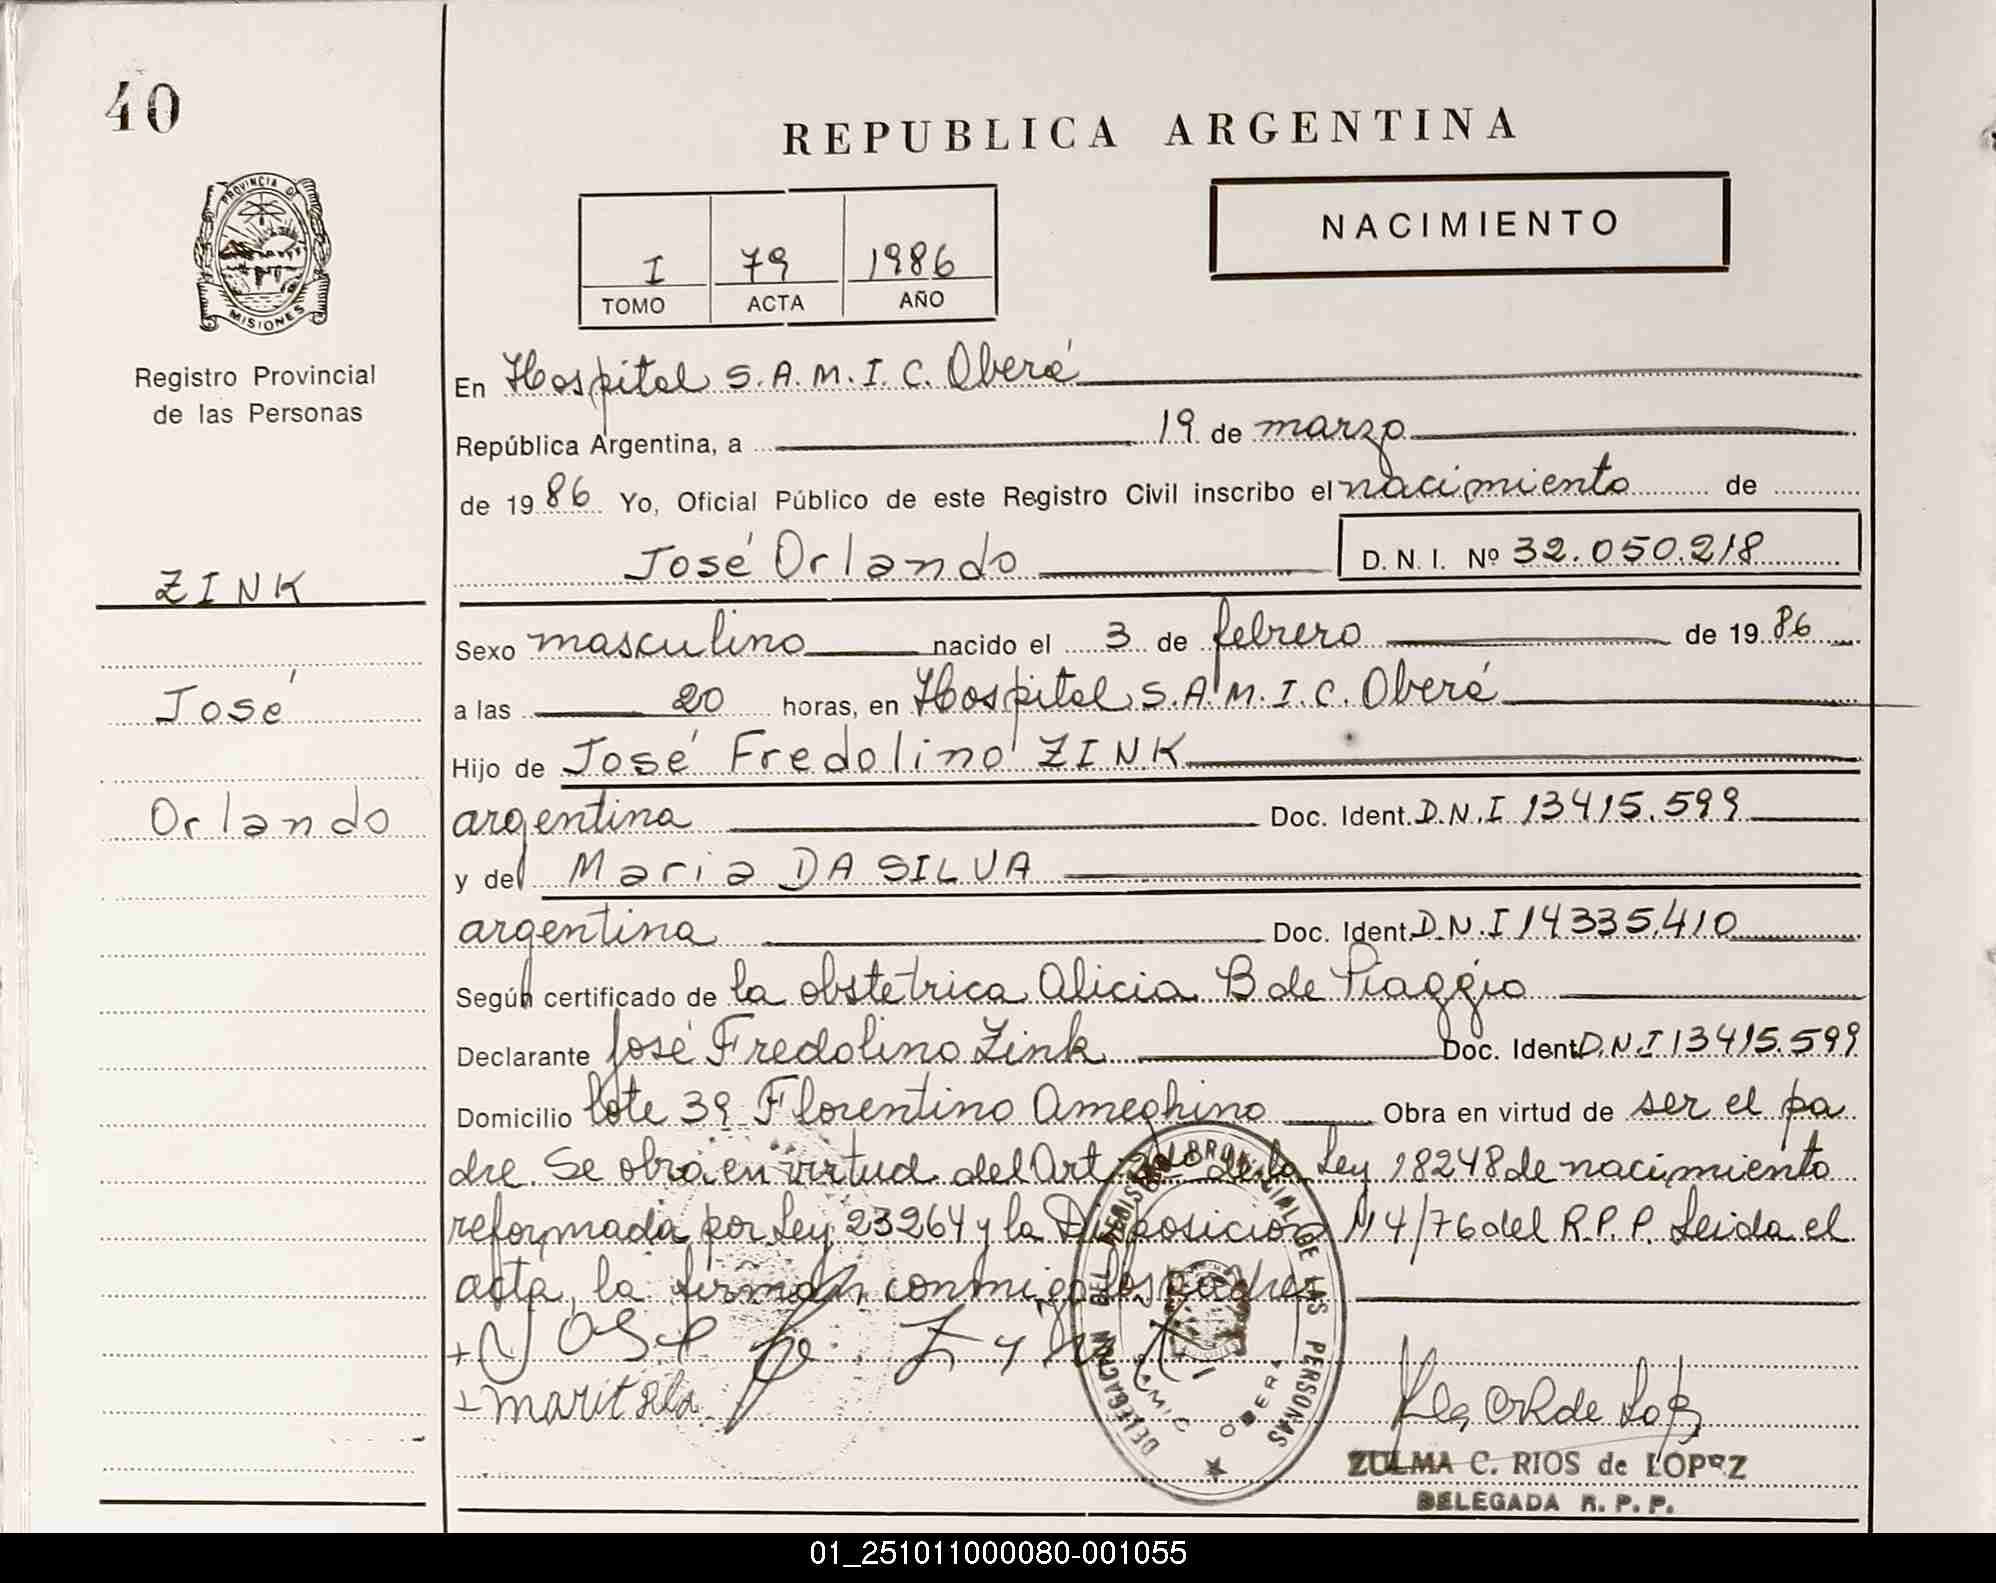 40
REPUBLICA ARGENTINA
PROVINCIA DE
MISIONES
NACIMIENTO
I 79 1986
TOMO ACTA AÑO
Registro Provincial
de las Personas
ZINK
José
Orlando
En Hospital S.A.M.I.C. Oberá
República Argentina, a 19 de marzo
de 1986 Yo, Oficial Público de este Registro Civil inscribo el nacimiento de
José Orlando D.N.I. Nº 32.050.218
Sexo masculino nacido el 3 de febrero de 1986
a las 20 horas, en Hospital S.A.M.I.C. Oberá
Hijo de José Fredolino ZINK
argentina Doc. Ident. D.N.I 13415.599
y de Maria DA SILVA
argentina Doc. Ident. D.N.I 14335.410
Según certificado de la obstetrica Alicia B de Piaggio
Declarante José Fredolino Zink Doc. Ident. D.N.I 13415.599
Domicilio lote 39 Florentino Ameghino Obra en virtud de ser el pa
dre. Se obra en virtud del Art de la Ley 18248 de nacimiento
reformada por Ley 23264 y la Disposicion Nº 4/76 del R.P.P. Leida el
acta, la firman conmigo los padres
+ JOSE Zink
+ marit
DELEGACION DEL REGISTRO PROVINCIAL DE LAS PERSONAS
SAMIC OBERA
ZULMA C. RIOS de LOPEZ
DELEGADA R. P. P.
01_251011000080-001055